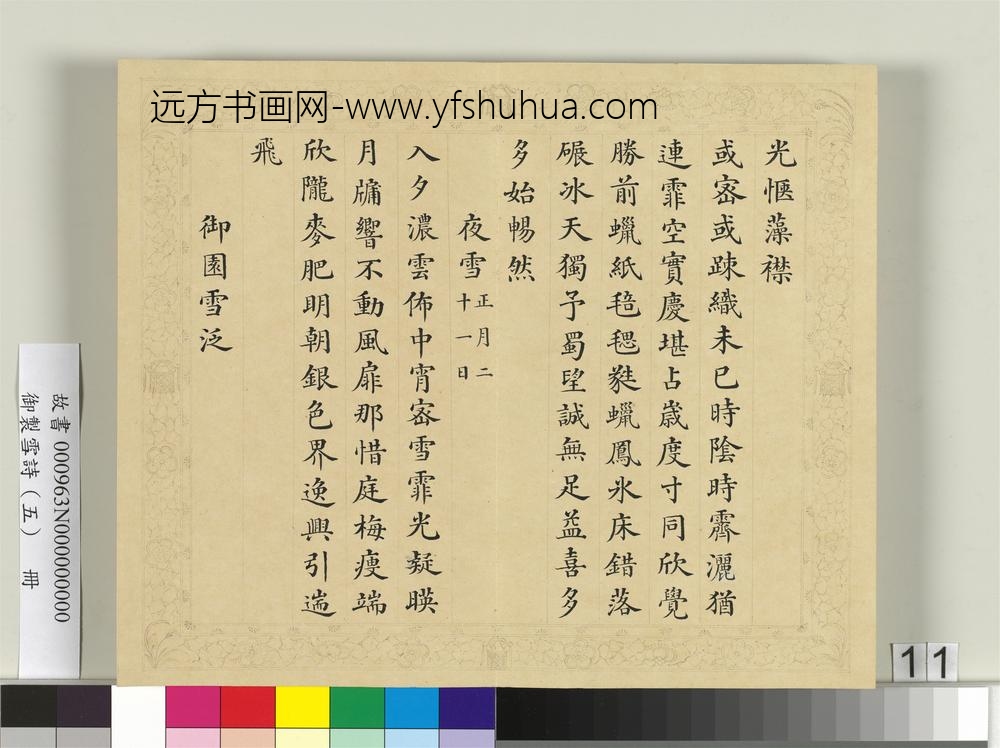 远方书画网-www.yfshuhua.com
光愜藻襟
或密或踈織未已時陰時霽灑猶
連霏空實慶堪占歲度寸同欣覺
勝前蠟紙毰毸㲚蠟鳳氷床錯落
碾冰天獨予蜀望誠無足益喜多
多始暢然
夜雪正月二十一日
入夕濃雲佈中宵密雪霏光凝暎
月牗響不動風扉那惜庭梅瘦端
欣隴麥肥明朝銀色界逸興引遄
飛
御園雪泛
故書 000963N000000000
御製雪詩（五） 冊
11